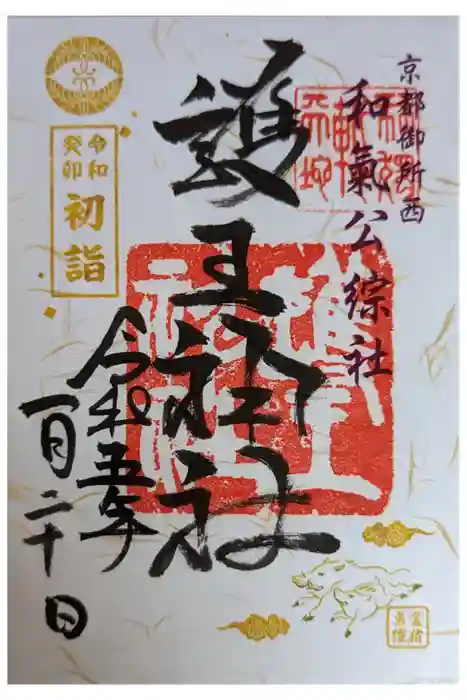 京都御所西
和氣公綜社
護王神社
令和五年
一月二十日
令和
癸卯
初詣